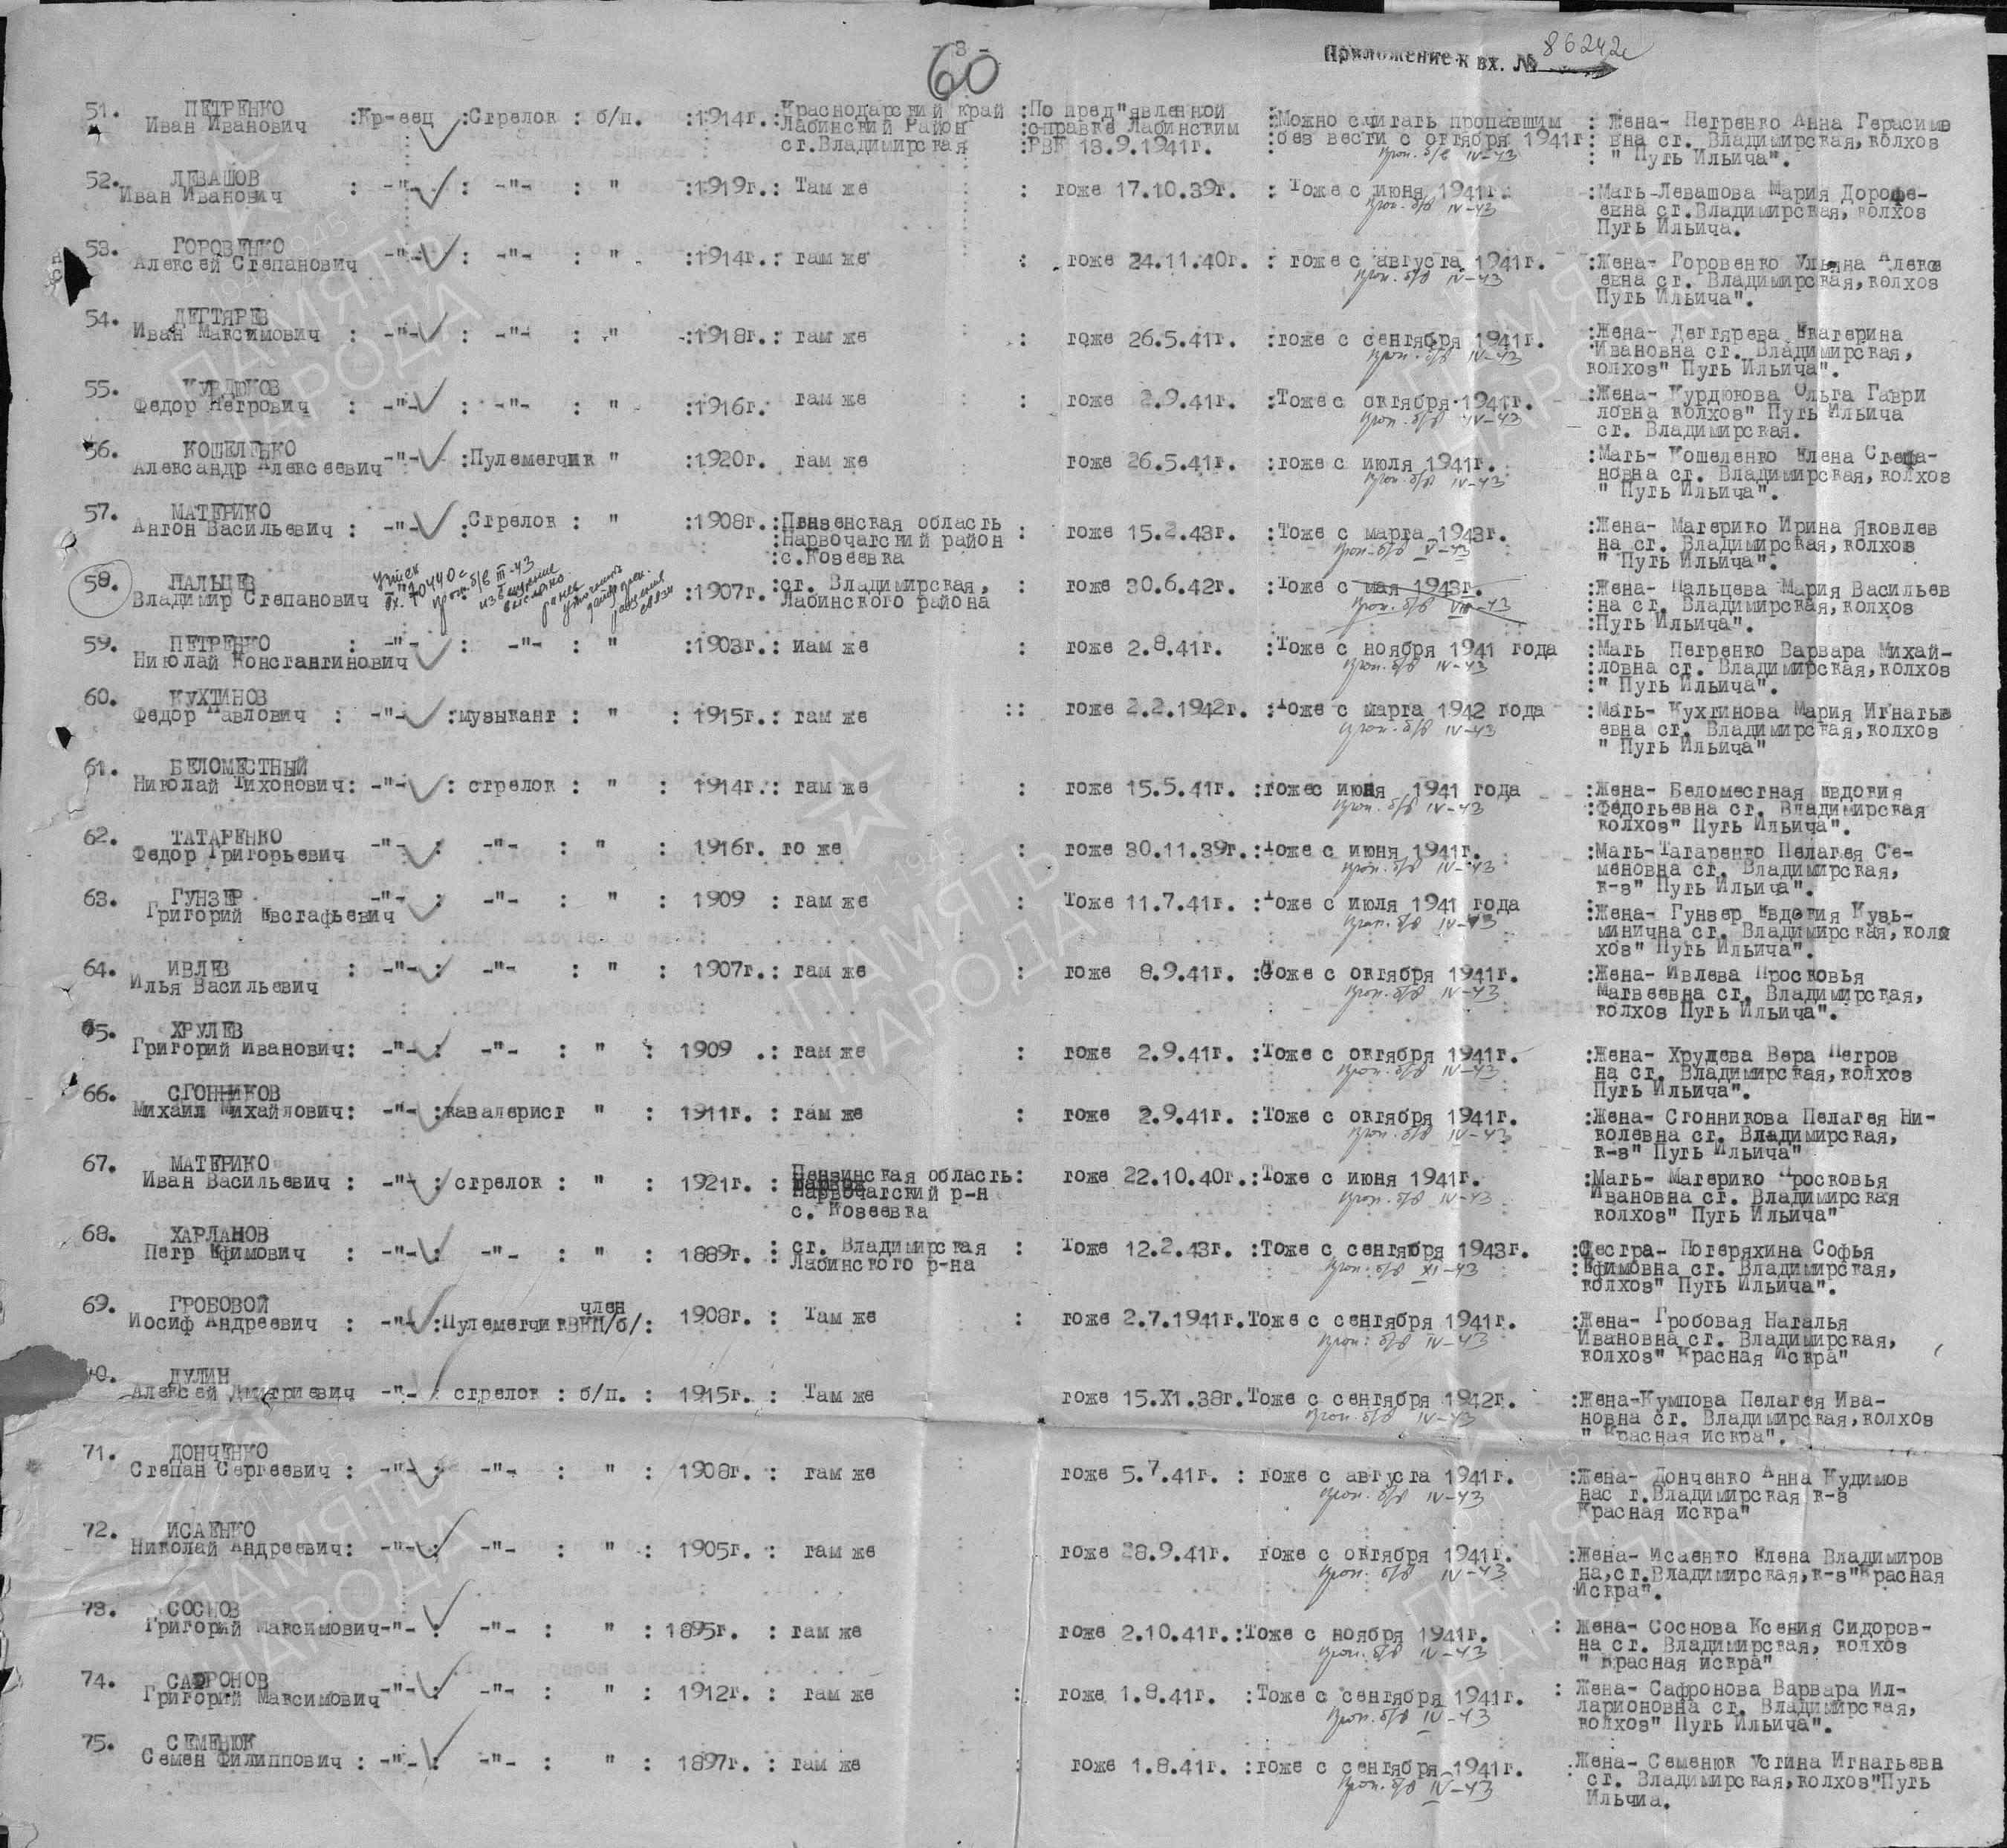 - 3 -
60
Приложение к вх. № 86242с
51. ПЕТРЕНКО Иван Иванович :Кр-еец :Стрелок : б/п. :1914г. :Краснодарский край :По пред"явленной :Можно считать пропавшим : Жена- Петренко Анна Герасимо
Лабинский Район :справке Лабинским :без вести с октября 1941г: вна ст. Владимирская, колхоз
ст.Владимирская :РВК 13.9.1941г. Проп. б/в IV-43 : " Путь Ильича".
52. ЛЕВАШОВ Иван Иванович : -"- : -"- : " :1919г.: Там же : тоже 17.10.39г. : Тоже с июня 1941г. :Мать-Левашова Мария Дорофе-
Проп. б/в IV-43 евна ст.Владимирская, колхоз
Путь Ильича.
53. ГОРОВЕНКО Алексей Степанович -"- : -"- : " :1914г.: там же : тоже 24.11.40г. : тоже с августа 1941г. :Жена- Горовенко Ульяна Алекс
Проп. б/в IV-43 евна ст. Владимирская, колхоз
Путь Ильича".
54. ДЕГТЯРЕВ Иван Максимович : -"- : -"- : " :1918г.: там же : тоже 26.5.41г. :тоже с сентября 1941г. :Жена- Дегтярева Екатерина
Проп. б/в IV-43 Ивановна ст. Владимирская,
колхоз" Путь Ильича".
55. КУРДЮКОВ Федор Петрович : -"- : -"- : " :1916г. там же : тоже 2.9.41г. :Тоже с октября 1941г. :Жена- Курдюкова Ольга Гаври
Проп. б/в IV-43 ловна колхоз" Путь Ильича
ст. Владимирская.
56. КОШЕЛЕНКО Александр Алексеевич -"- :Пулеметчик " :1920г. там же тоже 26.5.41г. :тоже с июля 1941г. :Мать- Кошеленко Елена Стефа-
Проп. б/в IV-43 новна ст. Владимирская, колхоз
" Путь Ильича".
57. МАТЕРИКО Антон Васильевич : -"- :Стрелок : " :1908г.:Пензенская область : тоже 15.2.43г. :Тоже с марта 1943г. :Жена- Материко Ирина Яковлев
:Нарвочатский район Проп. б/в V-43 на ст. Владимирская, колхоз
:с.Козеевка " Путь Ильича".
58. ПАЛЬЦЕВ Владимир Степанович вх. 70440с проп. б/в III-43 извещение выслано ранее :1907г.:ст. Владимирская, : тоже 30.6.42г. :Тоже с мая 1943г. :Жена- Пальцева Мария Васильев
Лабинского района Проп. б/в VIII-43 :на ст. Владимирская, колхоз
:Путь Ильича".
59. ПЕТРЕНКО Николай Константинович : -"- : -"- : " :1903г.: иам же : тоже 2.8.41г. :Тоже с ноября 1941 года :Мать Петренко Варвара Михай-
Проп. б/в IV-43 :ловна ст. Владимирская, колхоз
:" Путь Ильича".
60. КУХТИНОВ Федор Павлович : -"- :музыкант : " : 1915г.: там же :: тоже 2.2.1942г. :Тоже с марта 1942 года :Мать- Кухтинова Мария Игнатье
Проп. б/в IV-43 евна ст. Владимирская, колхоз
" Путь Ильича"
61. БЕЛОМЕСТНЫЙ Николай Тихонович: -"- : стрелок : " : 1914г.: там же : тоже 15.5.41г. :тожес июня 1941 года :Жена- Беломестная Евдокия
Проп. б/в IV-43 :Федотьевна ст. Владимирская
колхоз" Путь Ильича".
62. ТАТАРЕНКО Федор Григорьевич -"- : -"- : " : 1916г. то же : тоже 30.11.39г.:Тоже с июня 1941г. :Мать-Татаренко Пелагея Се-
Проп. б/в IV-43 меновна ст. Владимирская,
к-з" Путь Ильича".
63. ГУНЗЕР Григорий Евстафьевич -"- : -"- : " : 1909 : там же : Тоже 11.7.41г. :Тоже с июля 1941 года :Жена- Гунзер Евдокия Кузь-
Проп. б/в IV-43 минична ст. Владимирская, колх
хоз" Путь Ильича".
64. ИВЛЕВ Илья Васильевич : -"- : -"- : " : 1907г.: там же : тоже 8.9.41г. :Тоже с октября 1941г. :Жена- Ивлева Просковья
Проп. б/в IV-43 Матвеевна ст. Владимирская,
колхоз Путь Ильича".
65. ХРУЛЕВ Григорий Иванович: -"- : -"- : " : 1909 .: там же : тоже 2.9.41г. :Тоже с октября 1941г. :Жена- Хрулева Вера Петров
Проп. б/в IV-43 на ст. Владимирская, колхоз
Путь Ильича".
66. СГОННИКОВ Михаил Михайлович: -"- :кавалерист " : 1911г. : там же : тоже 2.9.41г. :Тоже с октября 1941г. :Жена- Сгонникова Пелагея Ни-
Проп. б/в IV-43 колевна ст. Владимирская,
к-з" Путь Ильича"
67. МАТЕРИКО Иван Васильевич : -"- : стрелок : " : 1921г. : Пензинская область: тоже 22.10.40г.:Тоже с июня 1941г. :Мать- Материко Просковья
Нарвочатский р-н Проп. б/в IV-43 Ивановна ст. Владимирская
с. Козеевка колхоз" Путь Ильича"
68. ХАРЛАНОВ Петр Ефимович : -"- : -"- : " : 1889г. : ст. Владимирская : Тоже 12.2.43г. :Тоже с сентября 1943г. :Сестра- Потеряхина Софья
Лабинского р-на Проп. б/в XI-43 :Ефимовна ст. Владимирская,
колхоз" Путь Ильича".
69. ГРОБОВОЙ Иосиф Андреевич : -"- :Пулеметчик член ВКП/б/: 1908г. : Там же : тоже 2.7.1941г.Тоже с сентября 1941г. :Жена- Гробовая Наталья
Проп. б/в IV-43 Ивановна ст. Владимирская,
колхоз" Красная Искра"
70. ДУЛИН Алексей Дмитриевич -"- : стрелок : б/п. : 1915г. : Там же тоже 15.XI.38г.Тоже с сентября 1942г. :Жена-Кумпова Пелагея Ива-
Проп. б/в IV-43 новна ст. Владимирская, колхоз
" Красная искра".
71. ДОНЧЕНКО Степан Сергеевич : -"- : -"- : " : 1908г. : там же тоже 5.7.41г. : тоже с августа 1941г. :Жена- Донченко Анна Кудимов
Проп. б/в IV-43 нас т.Владимирская к-з
Красная искра"
72. ИСАЕНКО Николай Андреевич: -"- : -"- : " : 1905г. : там же тоже 28.9.41г. тоже с октября 1941г. :Жена- Исаенко Елена Владимиров
Проп. б/в IV-43 на,ст.Владимирская,к-з"Красная
Искра".
73. СОСНОВ Григорий Максимович-"- : -"- : " : 1895г. : там же тоже 2.10.41г.:Тоже с ноября 1941г. : Жена- Соснова Ксения Сидоров-
Проп. б/в IV-43 на ст. Владимирская, колхоз
" Красная искра"
74. САФРОНОВ Григорий Максимович -"- : -"- : " : 1912г. : там же : тоже 1.8.41г. :Тоже с сентября 1941г. : Жена- Сафронова Варвара Ил-
Проп. б/в IV-43 ларионовна ст. Владимирская,
колхоз" Путь Ильича".
75. СЕМЕНЮК Семен Филиппович : -"- : -"- : " : 1897г. : там же : тоже 1.8.41г. :тоже с сентября 1941г. :Жена- Семенюк Устина Игнатьевн
Проп. б/в IV-43 ст. Владимирская,колхоз"Путь
Ильчиа.
ПАМЯТЬ НАРОДА
1941 1945